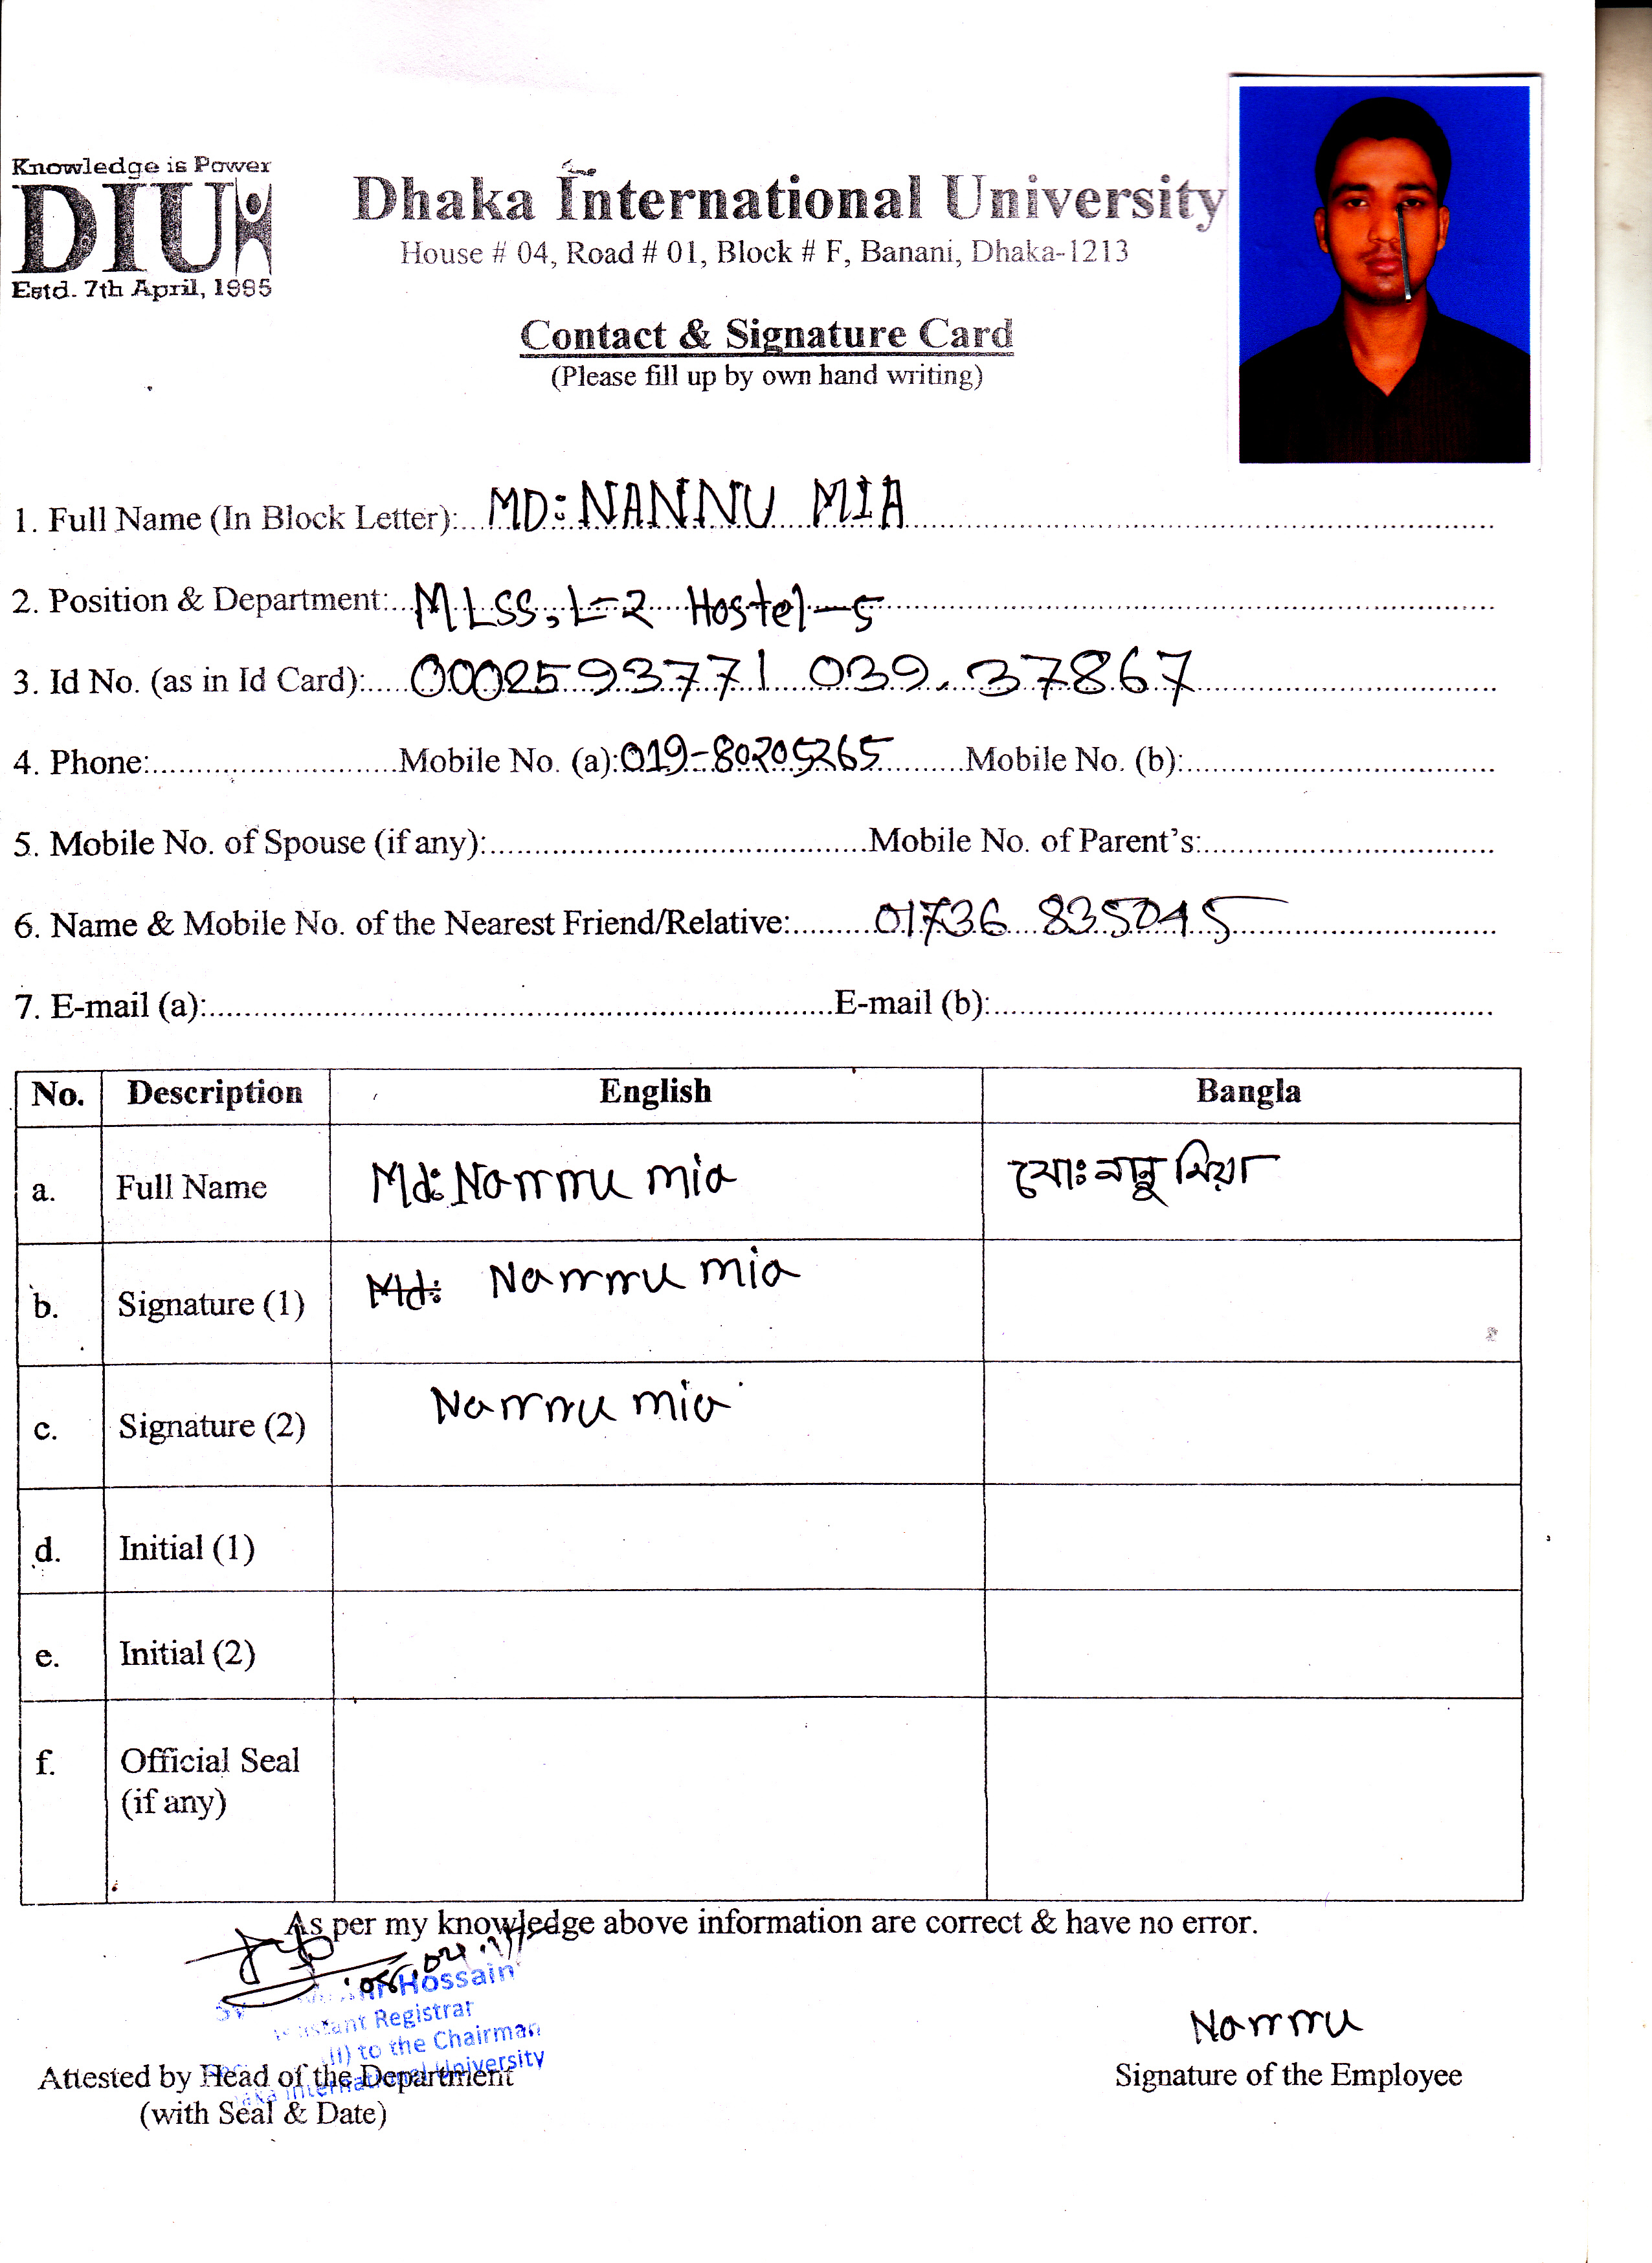 Knowledge is Power
DIU
Estd. 7th April, 1995
Dhaka International University
House # 04, Road # 01, Block # F, Banani, Dhaka-1213
Contact & Signature Card
(Please fill up by own hand writing)
1. Full Name (In Block Letter): MD: NANNU MIA
2. Position & Department: MLSS, L-2 Hostel-5
3. Id No. (as in Id Card): 0002593771 039.37867
4. Phone: Mobile No. (a): 019-80205265 Mobile No. (b):
5. Mobile No. of Spouse (if any): Mobile No. of Parent's:
6. Name & Mobile No. of the Nearest Friend/Relative: 01736 835045
7. E-mail (a): E-mail (b):
No. Description English Bangla
a. Full Name Md: Nannu mia মোঃ নান্নু মিয়া
b. Signature (1) Md: Nannu mia
c. Signature (2) Nannu mia
d. Initial (1)
e. Initial (2)
f. Official Seal
(if any)
As per my knowledge above information are correct & have no error.
Hossain
Registrar
to the Chairman
International University
Nannu
Attested by Head of the Department Signature of the Employee
(with Seal & Date)